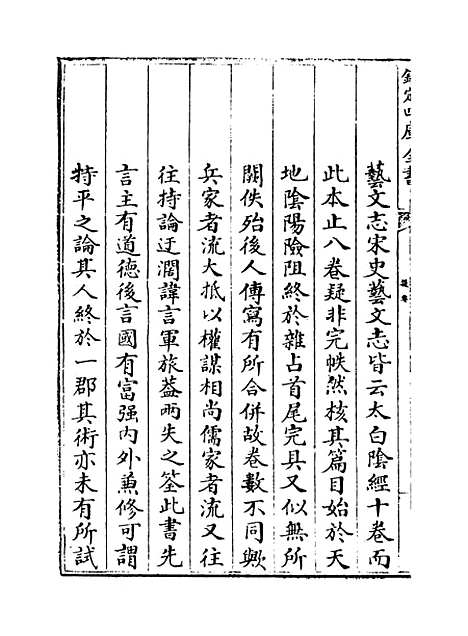 欽定四庫全書
提要
藝文志宋史藝文志皆云太白陰經十卷而
此本止八卷疑非完帙然核其篇目始於天
地陰陽險阻終於雜占首尾完具又似無所
闕佚殆後人傳寫有所合併故卷數不同歟
兵家者流大抵以權謀相尚儒家者流又往
往持論迂濶諱言軍旅葢兩失之筌此書先
言主有道德後言國有富强内外兼修可謂
持平之論其人終於一郡其術亦未有所試